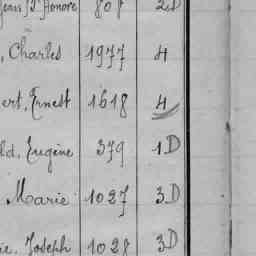 Jean, J^n Honoré 808 2D
, Charles 1977 4
ert, Ernest 1618 4
ld, Eugène 379 1D
Marie 1027 3D
ie, Joseph 1028 3D